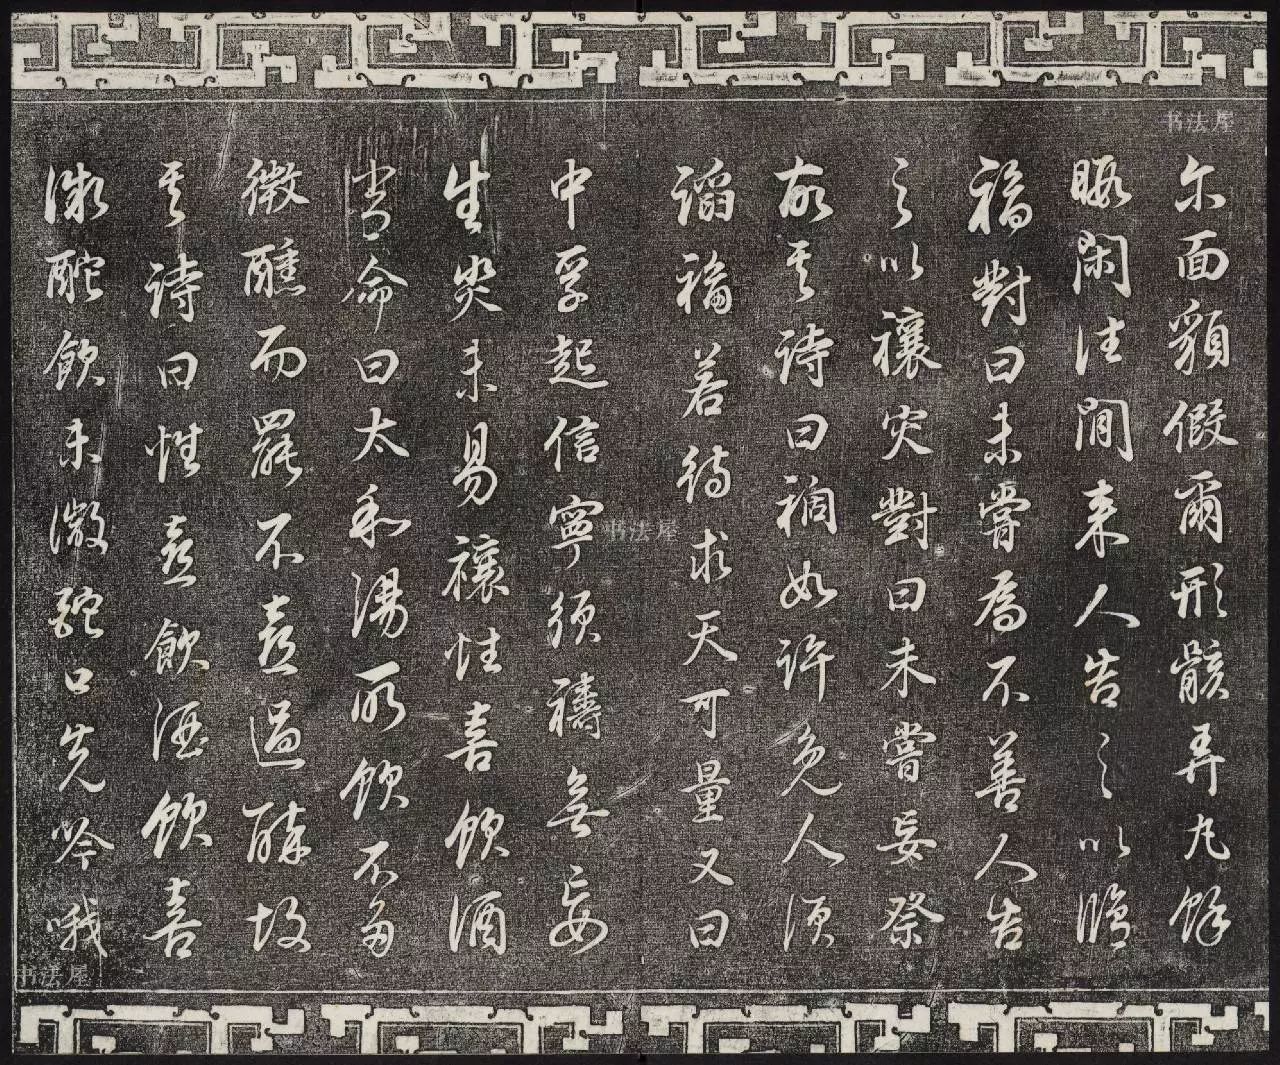 尔面貌假爾形骸弄丸餘
暇閑往閒来人告之以脩
福對曰未嘗為不善人告
之以禳灾對曰未嘗妄祭
故其詩曰禍如許免人須
諂福若待求天可量又曰
中孚起信寧須禱無妄
生災未易禳性喜飲酒
嘗命曰太和湯所飲不多
微醺而罷不喜過醉故
其詩曰性喜飲酒飲喜
微酡飲未微酡口先吟哦
书法屋
书法屋
书法屋